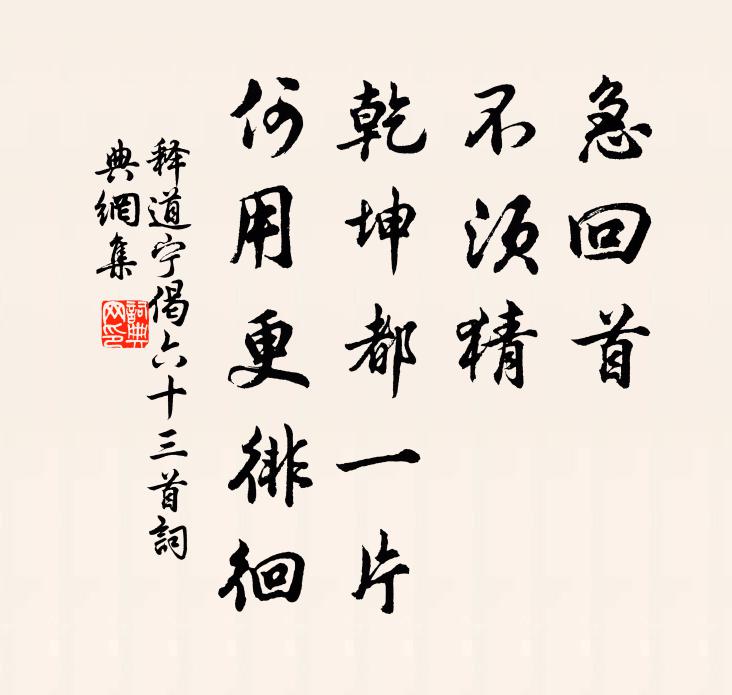 急回首
不须猜
乾坤都一片
何用更徘徊
释道宁偈六十三首詞
典網集
詞典
网印